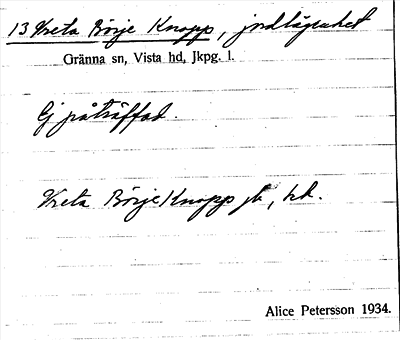 13 Vreta Börje Knapp, jordlägenhet
Gränna sn, Vista hd, Jkpg. l.
Ej påträffad.
Vreta Börje Knapp jl, hd.
Alice Petersson 1934.